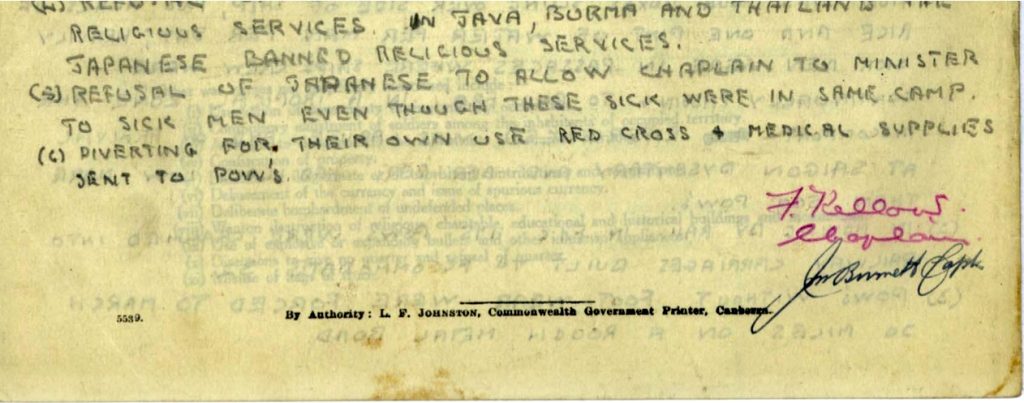 RELIGIOUS SERVICES. IN JAVA, BURMA AND THAILAND THE
JAPANESE BANNED RELIGIOUS SERVICES.
(5) REFUSAL OF JAPANESE TO ALLOW CHAPLAIN TO MINISTER
TO SICK MEN EVEN THOUGH THESE SICK WERE IN SAME CAMP.
(6) DIVERTING FOR THEIR OWN USE RED CROSS & MEDICAL SUPPLIES
SENT TO POW'S.
F. Kellow.
Chaplain.
Burnett Capt.
5539.
By Authority: L. F. JOHNSTON, Commonwealth Government Printer, Canberra.